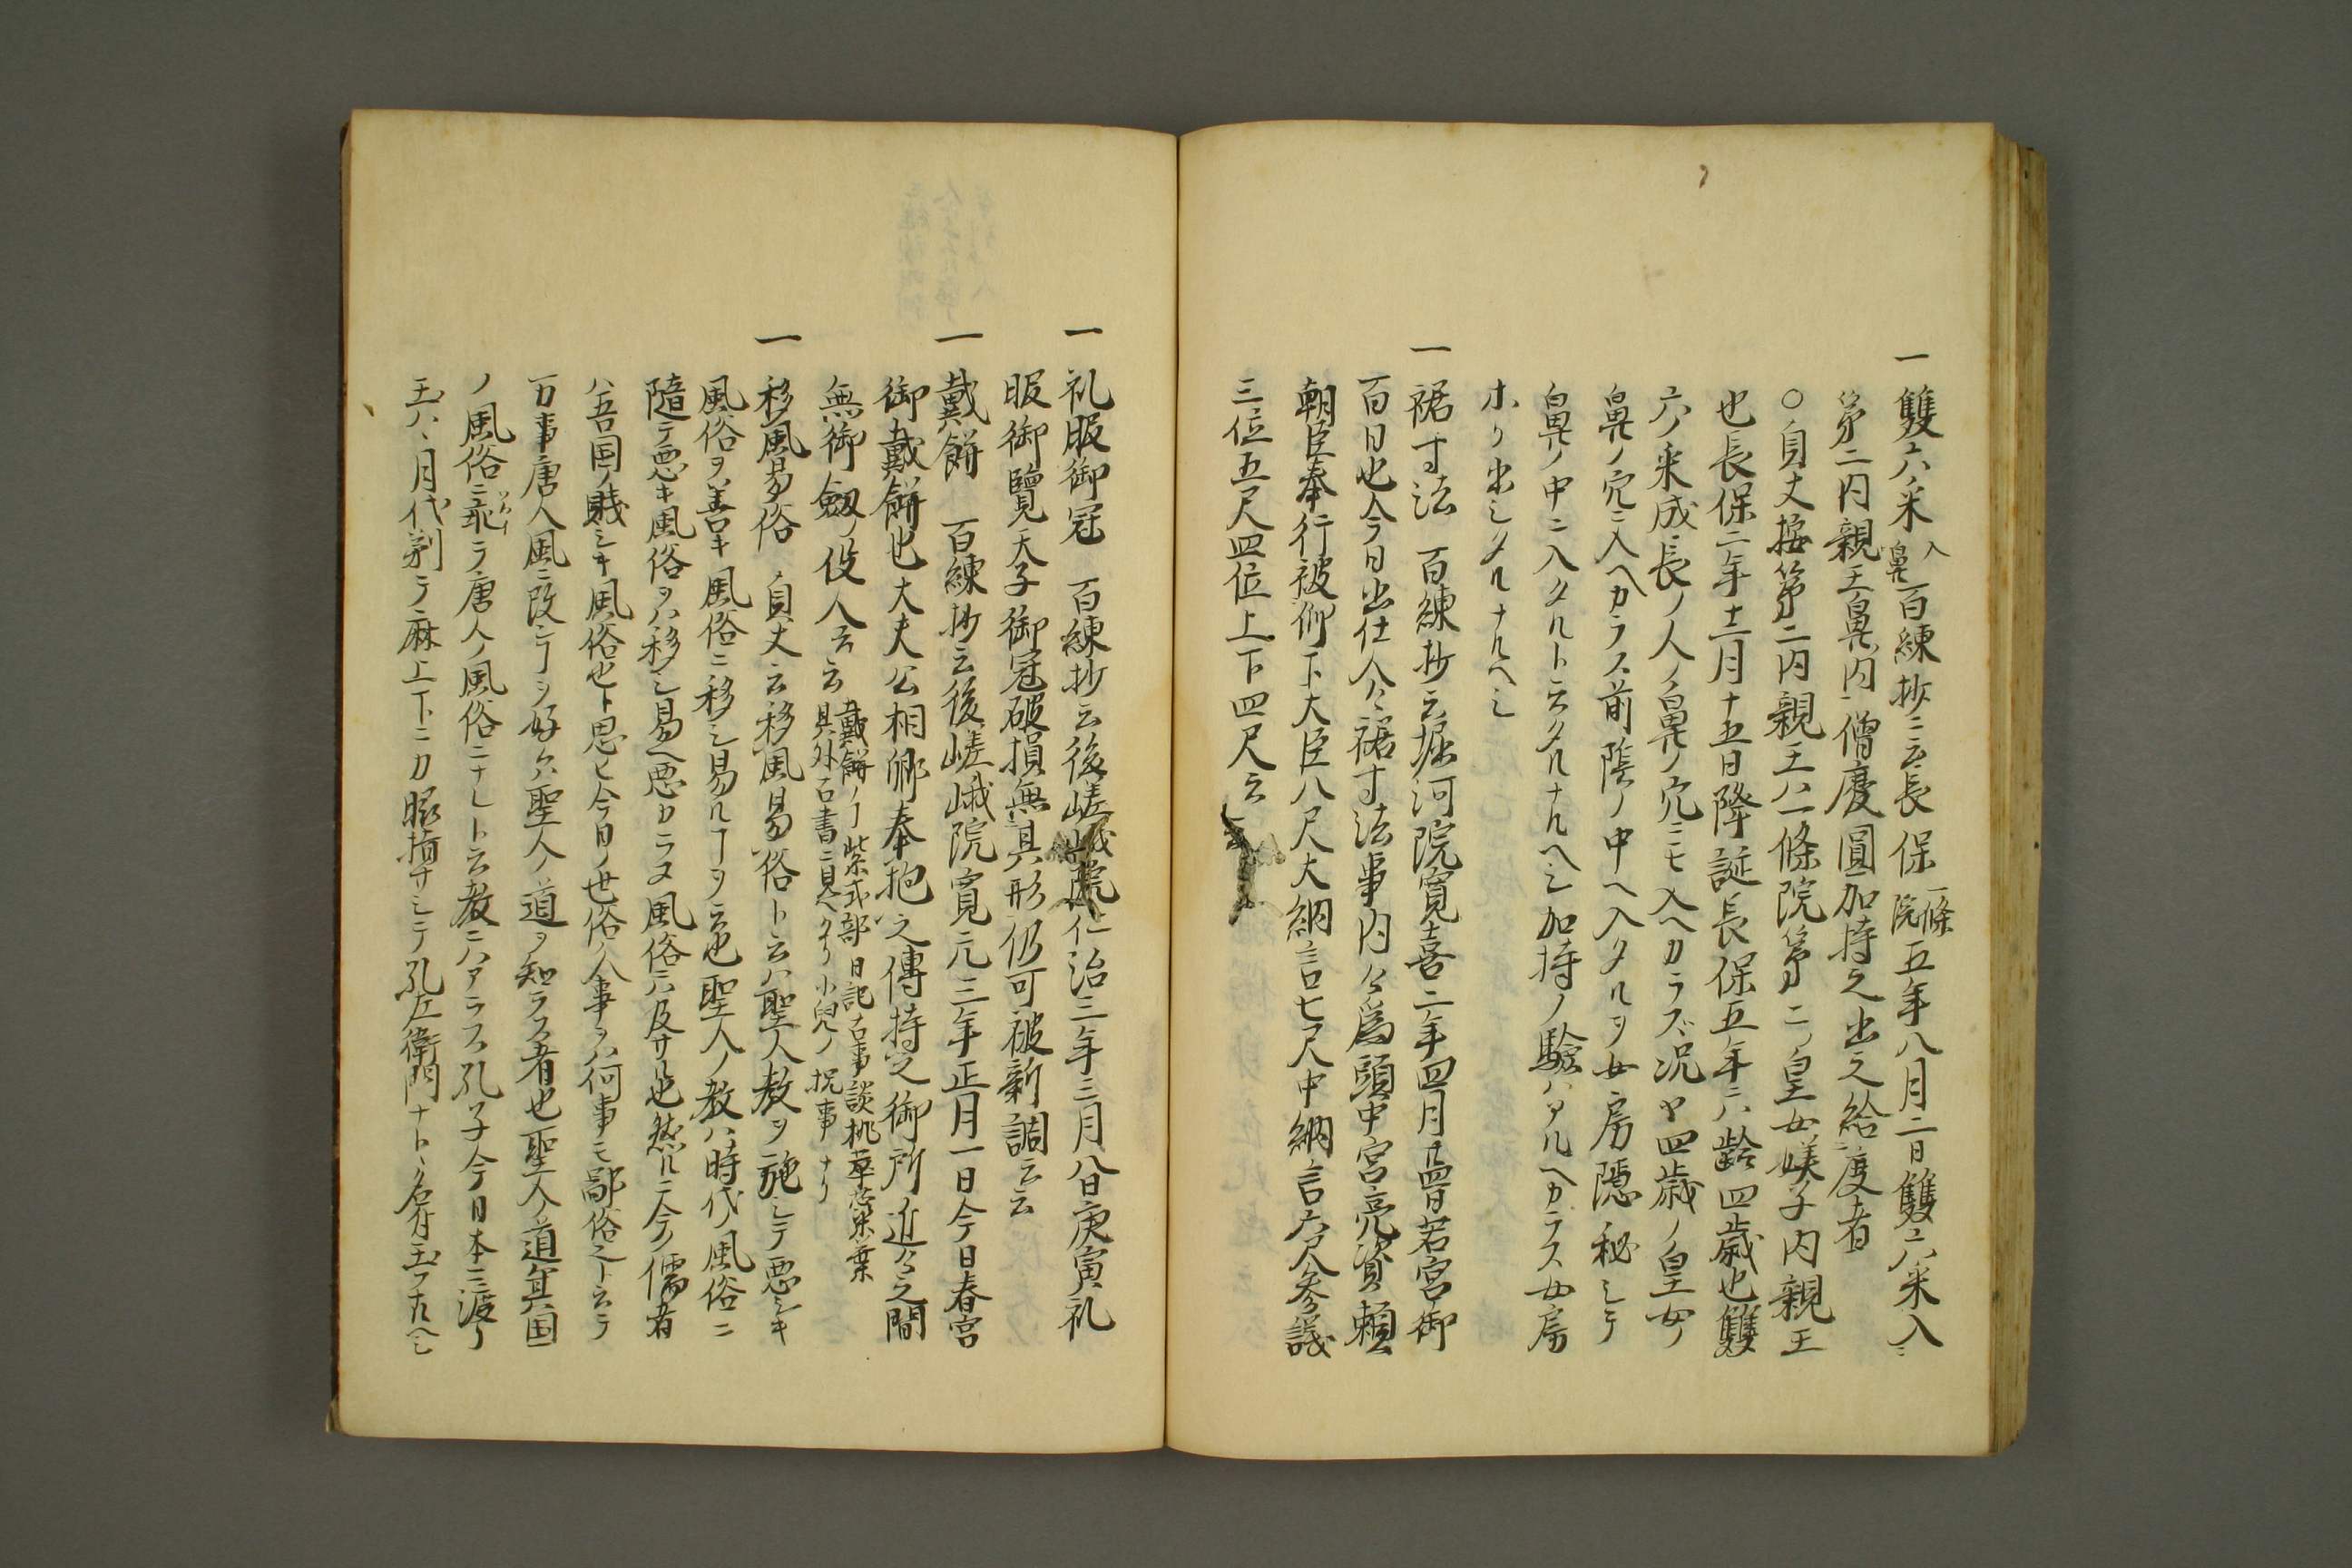 一 雙六ノ采入鼻 百練抄ニ云長保一條院五年八月二日雙六采入ニ
第二内親王鼻内僧慶圓加持之出之給度者
○貞丈按第二内親王ハ一條院第二ノ皇女媄子内親王
也長保二年十二月十五日降誕長保五年ニハ齢四歳也雙
六ノ采成長ノ人ノ鼻ノ穴ニモ入ヘカラズ况ヤ四歳ノ皇女ノ
鼻ノ穴ニ入ヘカラス前陰ノ中ヘ入タルヲ女房隠秘シテ
鼻ノ中ニ入タルト云タルナルヘシ加持ノ驗ハアルヘカラス女房
ホリ出シタルナルヘシ
一 裾寸法 百練抄云堀河院寛喜二年四月 若宮御
百日也今日出仕人々裾寸法事内々爲頭中宮亮資頼
朝臣奉行被仰下大臣八尺大納言七尺中納言六尺参議
三位五尺四位上下四尺云云
一 礼服御冠 百練抄云後嵯峨院仁治三年三月八日庚寅礼
服御覽天子御冠破損無其形仍可被新調云云
一 戴餅 百練抄云後嵯峨院寛元三年正月一日今日春宮
御戴餅也大夫公相卿奉抱之傳持之御所近々之間
無御劔ノ役人云云 戴餅ノ 紫式部日記古事談桃華蘂葉
其外古書ニ見ヘタリ小兒ノ祝事ナリ
一 移風易俗 貞丈云移風易俗ト云ハ聖人教ヲ施シテ悪シキ
風俗ヲ善キ風俗ニ移シ易ルヿヲ云也聖人ノ教ハ時代ノ風俗ニ
隨テ悪キ風俗ヲハ移シ易ヘ悪カラヌ風俗ニハ及サル也然ルニ今ノ儒者
ハ吾国ノ賎シキ風俗也ト思ヒ今日ノ世俗ノ人事ヲハ何事モ鄙俗之ト云テ
万事唐人風ニ改シヿヲ好ムハ聖人ノ道ヲ知ラヌ者也聖人ノ道其国
ノ風俗ニ乖ソムイテ唐人ノ風俗ニナレト云教ニハアラス孔子今日本ニ渡リ
玉ハヽ月代剃テ麻上下ニカ 指サシテ孔左衛門ナトヽ名付玉フナルヘシ